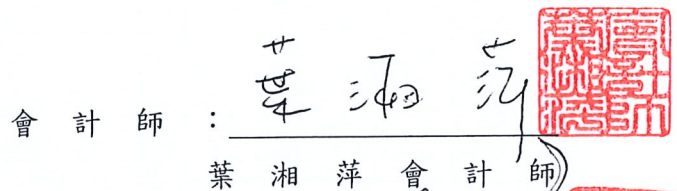 會計師：葉湘萍
葉湘萍會計師